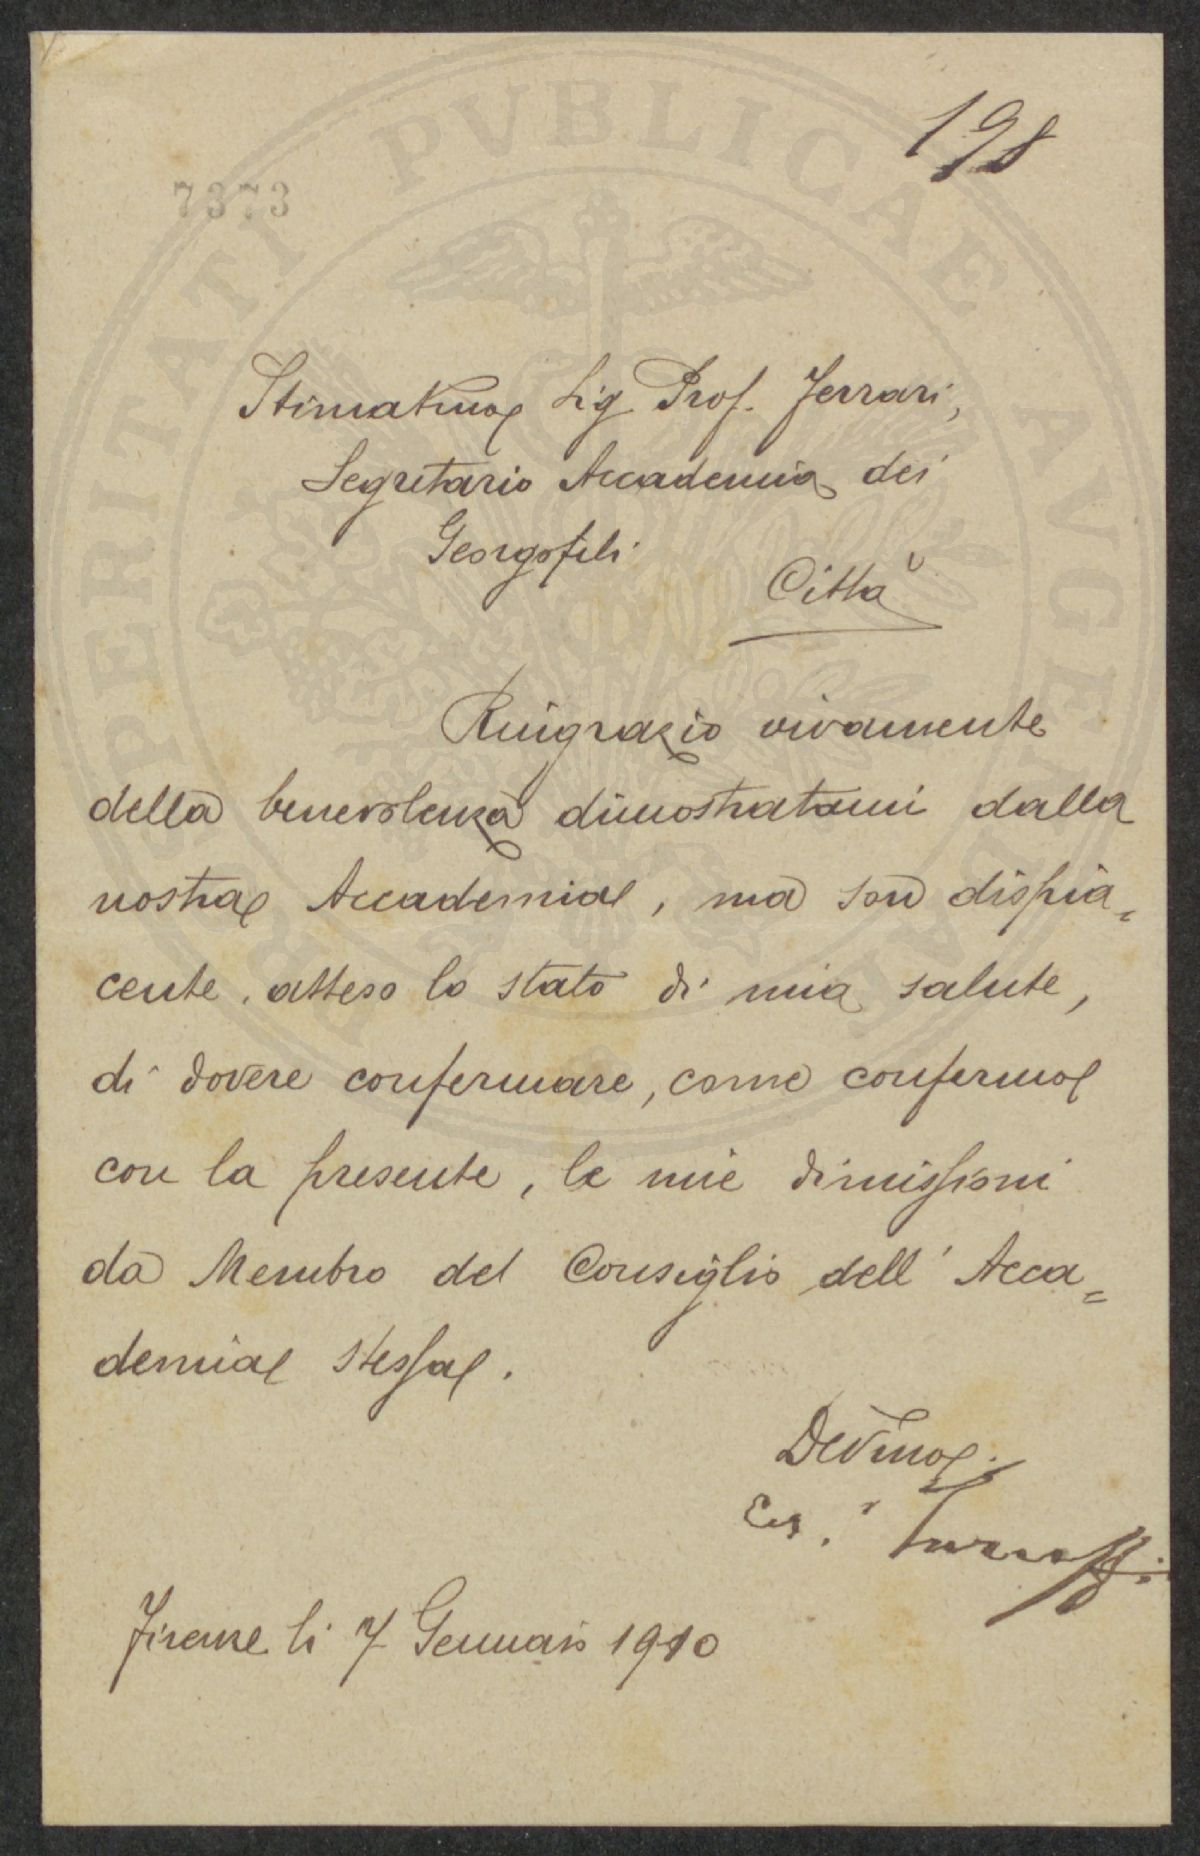 198
7373
Stimatimo Sig Prof. Ferrari,
Segretario Accademia dei
Georgofili
Città
Ringrazio vivamente
della benevolenza dimostratami dalla
nostra Accademia, ma son dispia=
cente, atteso lo stato di mia salute,
di dovere confermare, come confermo
con la presente, le mie dimissioni
da Membro del Consiglio dell' Acca=
demia stessa.
Devmo.
Firenze li 7 Gennaio 1910
PROSPERITATI PVBLICAE AVGENDAE